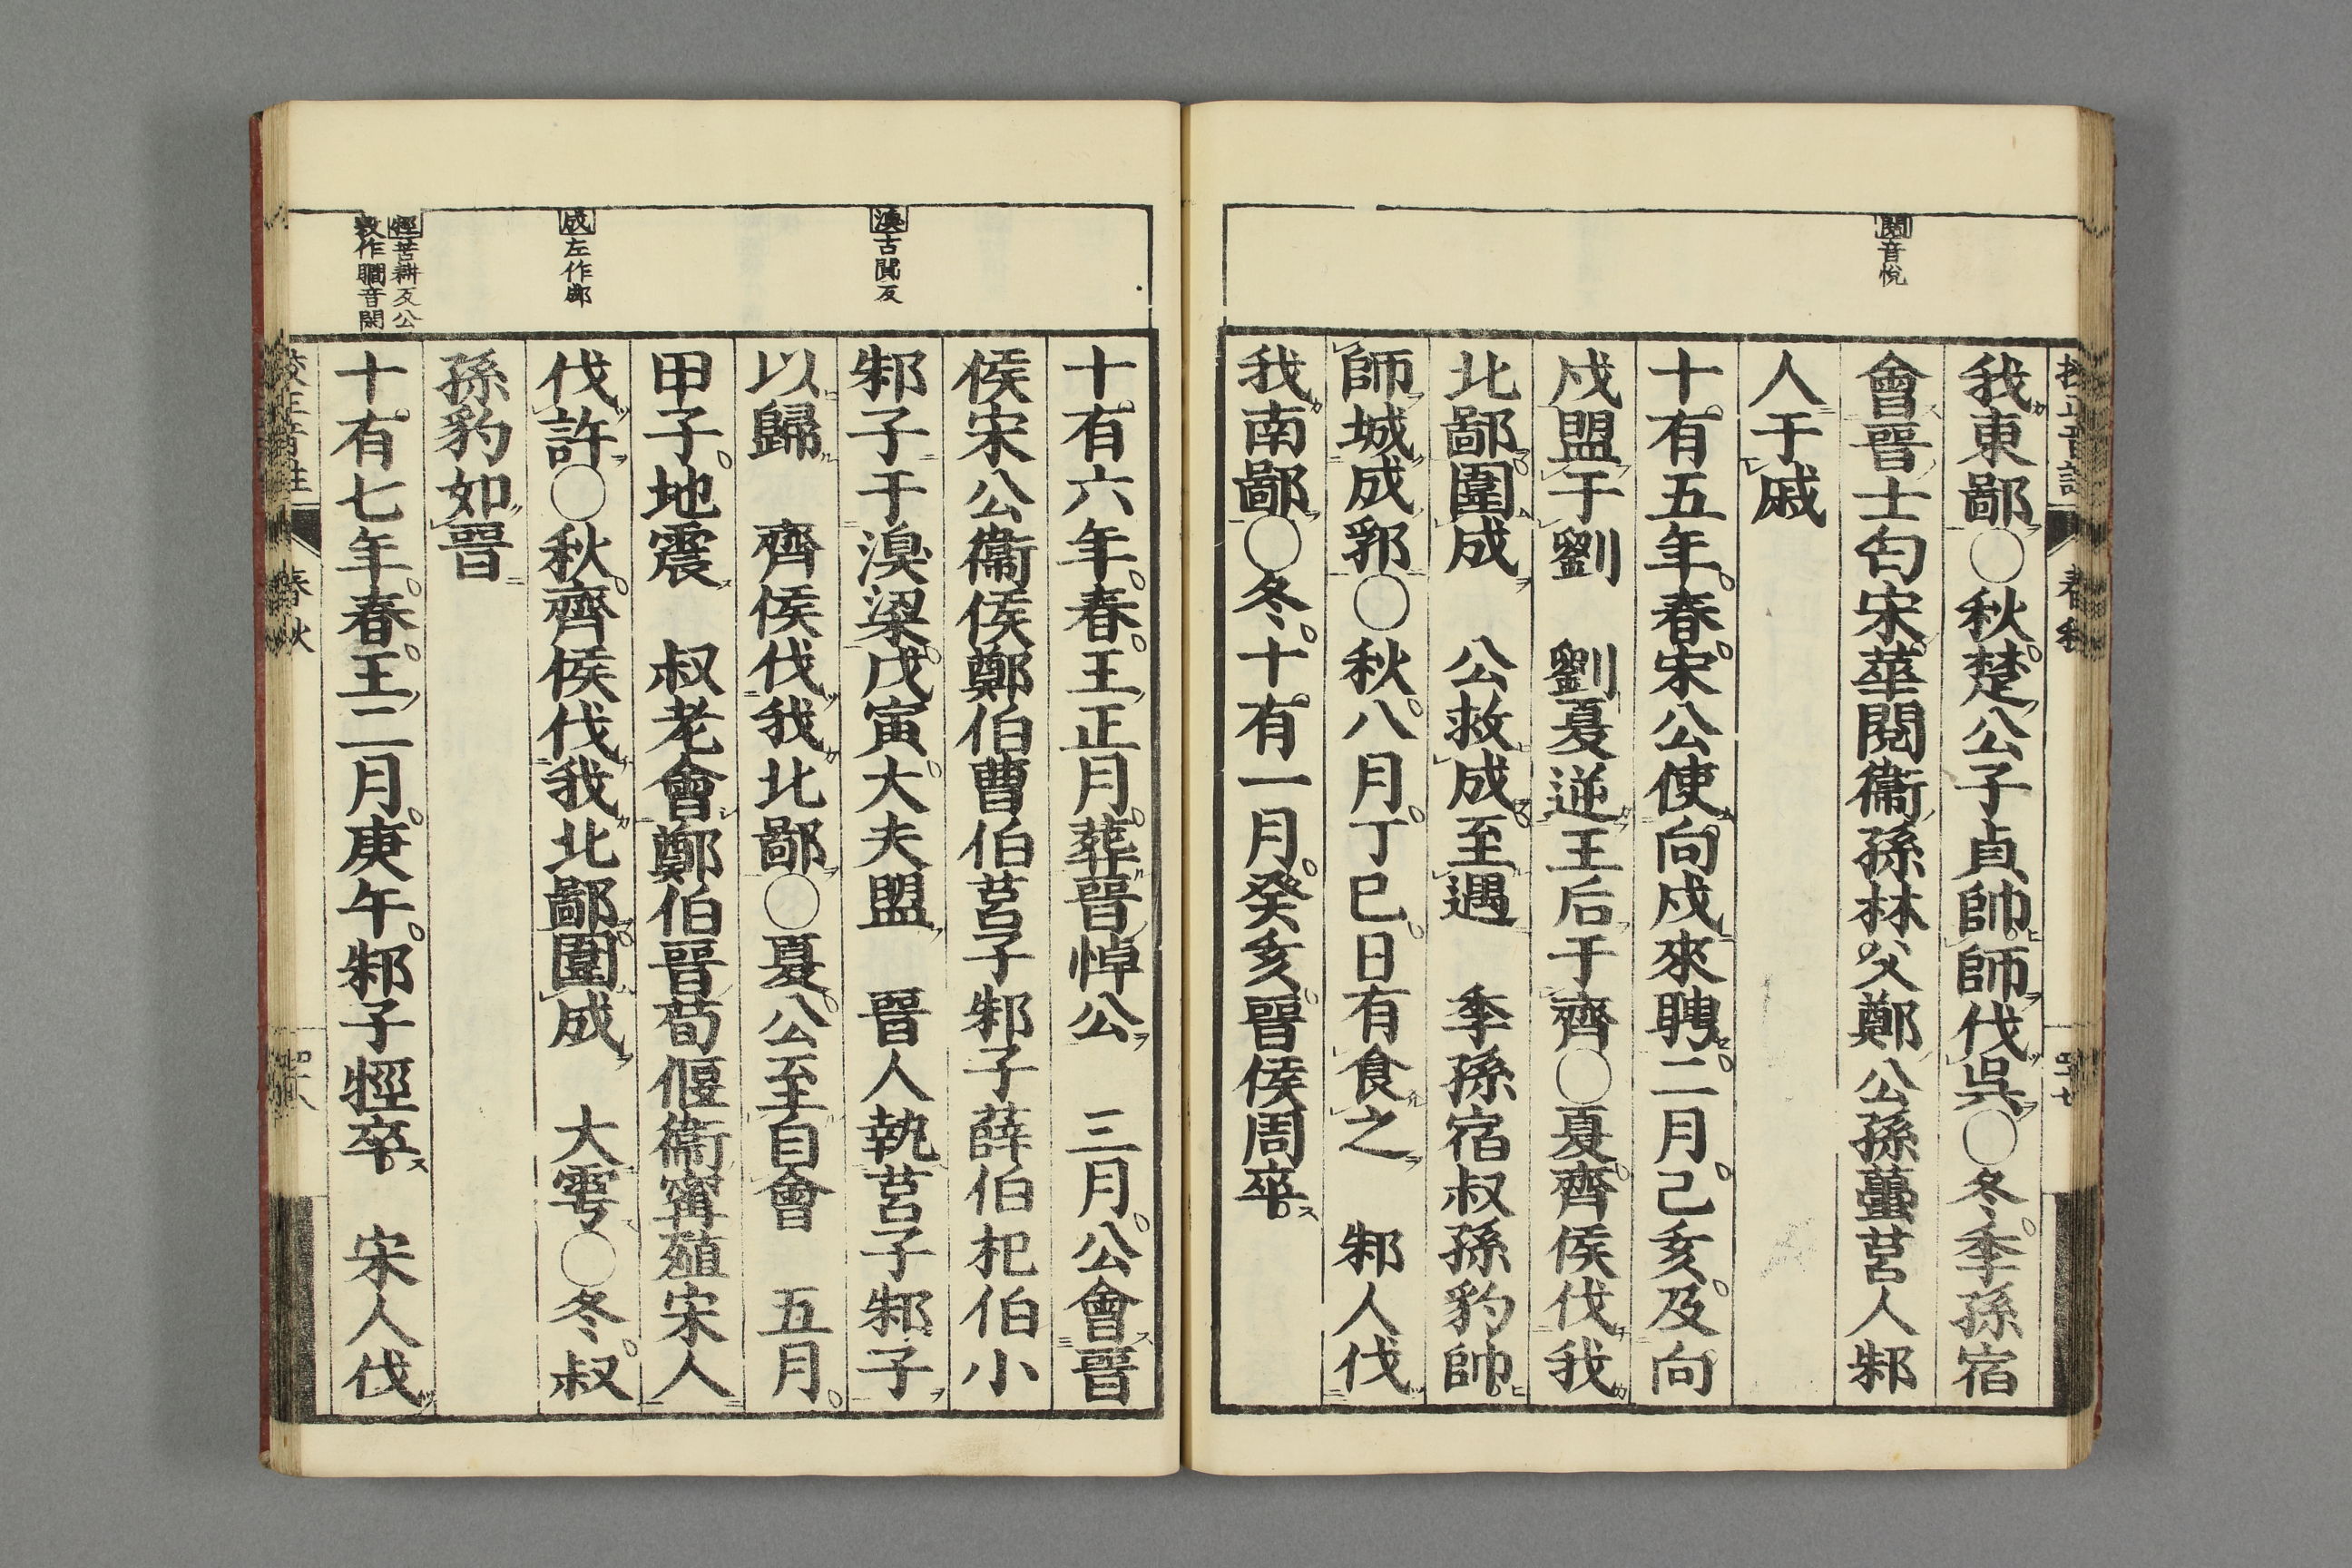 閱音悅
我東鄙○秋楚公子貞帥師伐吳○冬季孫宿
會晉士匄宋華閱衞孫林父鄭公孫蠆莒人邾
人于戚
十有五年春宋公使向戌來聘二月己亥及向
戌盟于劉　劉夏逆王后于齊○夏齊侯伐我
北鄙圍成　公救成至遇　季孫宿叔孫豹帥
師城成郛○秋八月丁巳日有食之　邾人伐
我南鄙○冬十有一月癸亥晉侯周卒
湨古闃反
成左作郕
牼苦耕反公
穀作瞯音閑
十有六年春王正月葬晉悼公　三月公會晉
侯宋公衞侯鄭伯曹伯莒子邾子薛伯杞伯小
邾子于湨梁戊寅大夫盟　晉人執莒子邾子
以歸　齊侯伐我北鄙○夏公至自會　五月
甲子地震　叔老會鄭伯晉荀偃衞甯殖宋人
伐許○秋齊侯伐我北鄙圍成　大雩○冬叔
孫豹如晉
十有七年春王二月庚午邾子牼卒　宋人伐
春秋